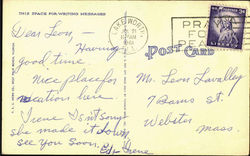 THIS SPACE FOR WRITING MESSAGES
Dear Leon,—
Having
good time.
Nice place for
vacation live.
Irene Isn't sorry
she made it down
see you soon.
Ed & Irene
LAKE WORTH
PRAY
FOR
POST CARD
Mr. Leon Lavalley
7 Davis St.
Webster
Mass.